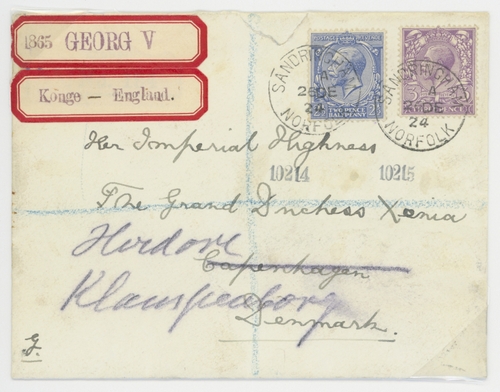 1865 GEORG V
Konge — England.
SANDRINGHAM
4
26 DE
24
NORFOLK
TWO PENCE HALFPENNY
SANDRINGHAM
4
26 DE
24
NORFOLK
Her Imperial Highness
10214 10215
The Grand Duchess Xenia
Hvidöre
Copenhagen
Klampenborg
Denmark.
G.